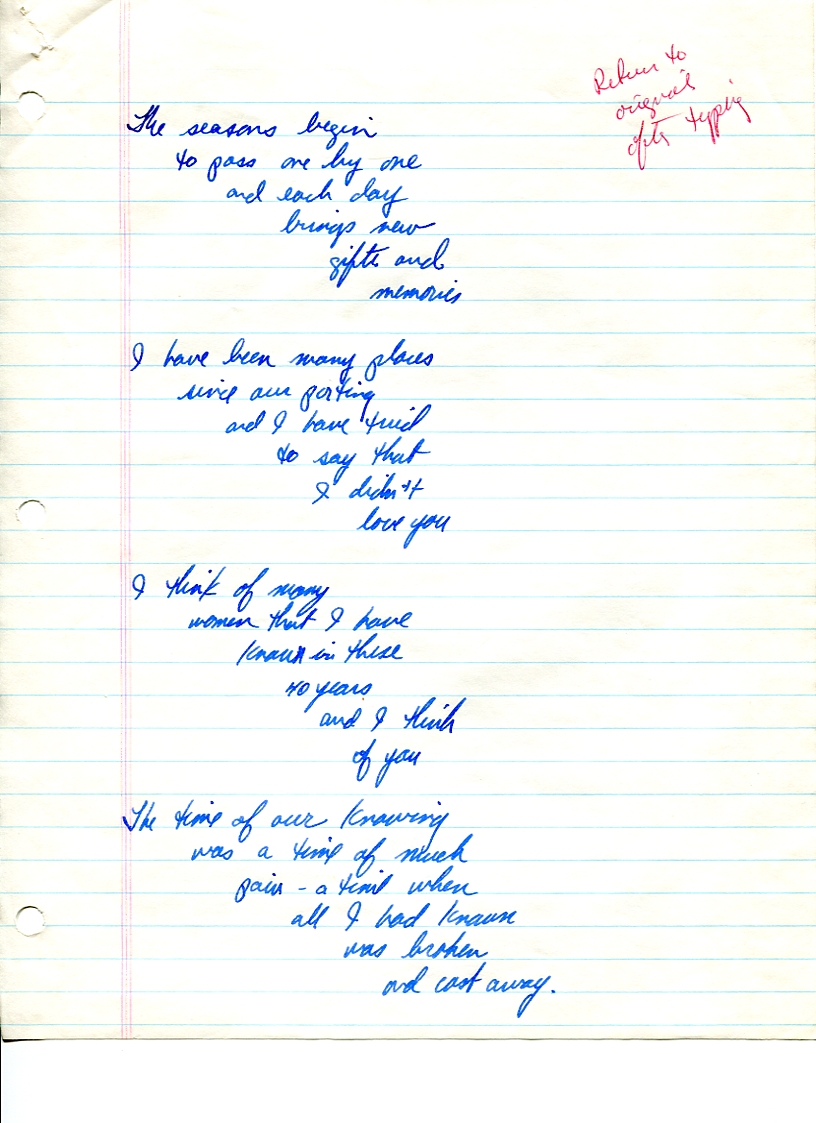 Return to
original
after typing
The seasons begin
to pass one by one
and each day
brings new
gifts and
memories
I have been many places
since our parting
and I have tried
to say that
I didn't
love you
I think of many
women that I have
known in these
40 years
and I think
of you
The time of our knowing
was a time of much
pain - a time when
all I had known
was broken
and cast away.